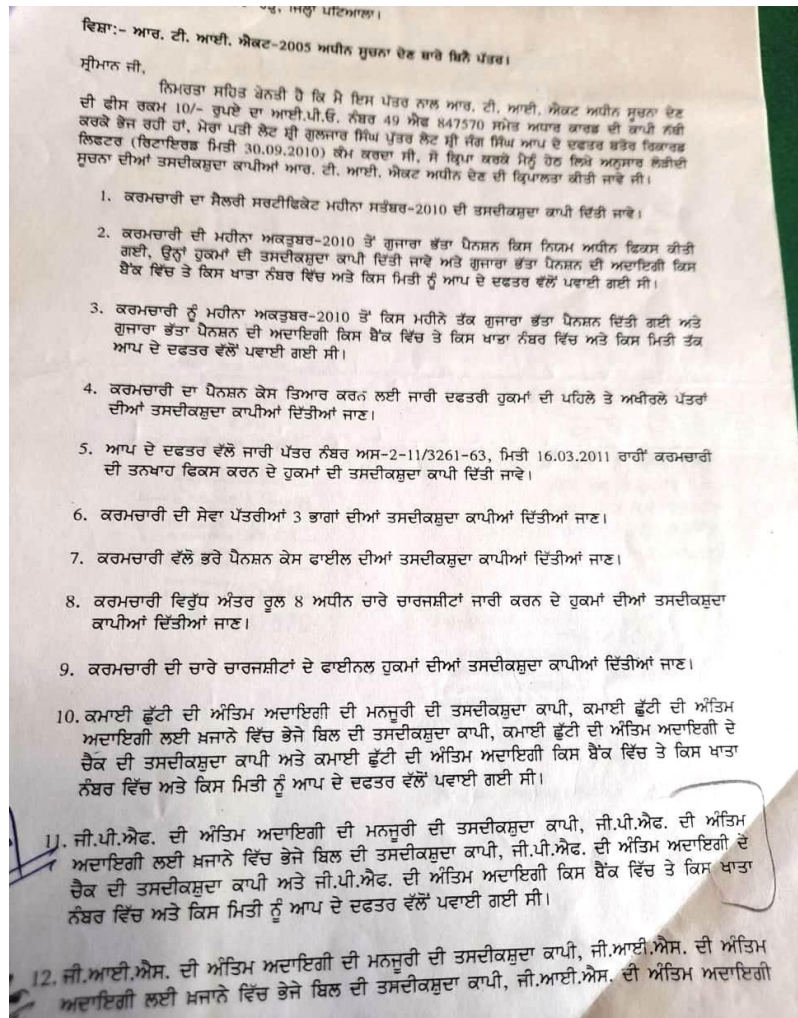 ਜ਼ਿਲ੍ਹਾ ਪਟਿਆਲਾ।
ਵਿਸ਼ਾ:- ਆਰ. ਟੀ. ਆਈ. ਐਕਟ-2005 ਅਧੀਨ ਸੂਚਨਾ ਦੇਣ ਬਾਰੇ ਬਿਨੈ ਪੱਤਰ।
ਸ੍ਰੀਮਾਨ ਜੀ,
ਨਿਮਰਤਾ ਸਹਿਤ ਬੇਨਤੀ ਹੈ ਕਿ ਮੈ ਇਸ ਪੱਤਰ ਨਾਲ ਆਰ. ਟੀ. ਆਈ. ਐਕਟ ਅਧੀਨ ਸੂਚਨਾ ਦੇਣ
ਦੀ ਫੀਸ ਰਕਮ 10/- ਰੁਪਏ ਦਾ ਆਈ.ਪੀ.ਓ. ਨੰਬਰ 49 ਐਫ 847570 ਸਮੇਤ ਅਧਾਰ ਕਾਰਡ ਦੀ ਕਾਪੀ ਨੱਥੀ
ਕਰਕੇ ਭੇਜ ਰਹੀ ਹਾਂ, ਮੇਰਾ ਪਤੀ ਲੇਟ ਸ਼੍ਰੀ ਗੁਲਜਾਰ ਸਿੰਘ ਪੁੱਤਰ ਲੇਟ ਸ਼੍ਰੀ ਜੰਗ ਸਿੰਘ ਆਪ ਦੇ ਦਫਤਰ ਬਤੋਰ ਰਿਕਾਰਡ
ਲਿਫਟਰ (ਰਿਟਾਇਰਡ ਮਿਤੀ 30.09.2010) ਕੰਮ ਕਰਦਾ ਸੀ, ਸੋ ਕ੍ਰਿਪਾ ਕਰਕੇ ਮੈਨੂੰ ਹੇਠ ਲਿਖੇ ਅਨੁਸਾਰ ਲੋੜੀਦੀ
ਸੂਚਨਾ ਦੀਆਂ ਤਸਦੀਕਸ਼ੁਦਾ ਕਾਪੀਆਂ ਆਰ. ਟੀ. ਆਈ. ਐਕਟ ਅਧੀਨ ਦੇਣ ਦੀ ਕ੍ਰਿਪਾਲਤਾ ਕੀਤੀ ਜਾਵੇ ਜੀ।
1. ਕਰਮਚਾਰੀ ਦਾ ਸੈਲਰੀ ਸਰਟੀਫਿਕੇਟ ਮਹੀਨਾ ਸਤੰਬਰ-2010 ਦੀ ਤਸਦੀਕਸ਼ੁਦਾ ਕਾਪੀ ਦਿੱਤੀ ਜਾਵੇ।
2. ਕਰਮਚਾਰੀ ਦੀ ਮਹੀਨਾ ਅਕਤੂਬਰ-2010 ਤੋਂ ਗੁਜਾਰਾ ਭੱਤਾ ਪੈਨਸ਼ਨ ਕਿਸ ਨਿਯਮ ਅਧੀਨ ਫਿਕਸ ਕੀਤੀ
ਗਈ, ਉਨ੍ਹਾਂ ਹੁਕਮਾਂ ਦੀ ਤਸਦੀਕਸ਼ੁਦਾ ਕਾਪੀ ਦਿੱਤੀ ਜਾਵੇ ਅਤੇ ਗੁਜਾਰਾ ਭੱਤਾ ਪੈਨਸ਼ਨ ਦੀ ਅਦਾਇਗੀ ਕਿਸ
ਬੈਂਕ ਵਿੱਚ ਤੇ ਕਿਸ ਖਾਤਾ ਨੰਬਰ ਵਿੱਚ ਅਤੇ ਕਿਸ ਮਿਤੀ ਨੂੰ ਆਪ ਦੇ ਦਫਤਰ ਵੱਲੋਂ ਪਵਾਈ ਗਈ ਸੀ।
3. ਕਰਮਚਾਰੀ ਨੂੰ ਮਹੀਨਾ ਅਕਤੂਬਰ-2010 ਤੋਂ ਕਿਸ ਮਹੀਨੇ ਤੱਕ ਗੁਜਾਰਾ ਭੱਤਾ ਪੈਨਸ਼ਨ ਦਿੱਤੀ ਗਈ ਅਤੇ
ਗੁਜਾਰਾ ਭੱਤਾ ਪੈਨਸ਼ਨ ਦੀ ਅਦਾਇਗੀ ਕਿਸ ਬੈਂਕ ਵਿੱਚ ਤੇ ਕਿਸ ਖਾਤਾ ਨੰਬਰ ਵਿੱਚ ਅਤੇ ਕਿਸ ਮਿਤੀ ਤੱਕ
ਆਪ ਦੇ ਦਫਤਰ ਵੱਲੋਂ ਪਵਾਈ ਗਈ ਸੀ।
4. ਕਰਮਚਾਰੀ ਦਾ ਪੈਨਸ਼ਨ ਕੇਸ ਤਿਆਰ ਕਰਨ ਲਈ ਜਾਰੀ ਦਫਤਰੀ ਹੁਕਮਾਂ ਦੀ ਪਹਿਲੇ ਤੇ ਅਖੀਰਲੇ ਪੱਤਰਾਂ
ਦੀਆਂ ਤਸਦੀਕਸ਼ੁਦਾ ਕਾਪੀਆਂ ਦਿੱਤੀਆਂ ਜਾਣ।
5. ਆਪ ਦੇ ਦਫਤਰ ਵੱਲੋ ਜਾਰੀ ਪੱਤਰ ਨੰਬਰ ਅਸ-2-11/3261-63, ਮਿਤੀ 16.03.2011 ਰਾਹੀਂ ਕਰਮਚਾਰੀ
ਦੀ ਤਨਖਾਹ ਫਿਕਸ ਕਰਨ ਦੇ ਹੁਕਮਾਂ ਦੀ ਤਸਦੀਕਸ਼ੁਦਾ ਕਾਪੀ ਦਿੱਤੀ ਜਾਵੇ।
6. ਕਰਮਚਾਰੀ ਦੀ ਸੇਵਾ ਪੱਤਰੀਆਂ 3 ਭਾਗਾਂ ਦੀਆਂ ਤਸਦੀਕਸ਼ੁਦਾ ਕਾਪੀਆਂ ਦਿੱਤੀਆਂ ਜਾਣ।
7. ਕਰਮਚਾਰੀ ਵੱਲੋ ਭਰੇ ਪੈਨਸ਼ਨ ਕੇਸ ਫਾਈਲ ਦੀਆਂ ਤਸਦੀਕਸ਼ੁਦਾ ਕਾਪੀਆਂ ਦਿੱਤੀਆਂ ਜਾਣ।
8. ਕਰਮਚਾਰੀ ਵਿਰੁੱਧ ਅੰਤਰ ਰੂਲ 8 ਅਧੀਨ ਚਾਰੇ ਚਾਰਜਸ਼ੀਟਾਂ ਜਾਰੀ ਕਰਨ ਦੇ ਹੁਕਮਾਂ ਦੀਆਂ ਤਸਦੀਕਸ਼ੁਦਾ
ਕਾਪੀਆਂ ਦਿੱਤੀਆਂ ਜਾਣ।
9. ਕਰਮਚਾਰੀ ਦੀ ਚਾਰੇ ਚਾਰਜਸ਼ੀਟਾਂ ਦੇ ਫਾਈਨਲ ਹੁਕਮਾਂ ਦੀਆਂ ਤਸਦੀਕਸ਼ੁਦਾ ਕਾਪੀਆਂ ਦਿੱਤੀਆਂ ਜਾਣ।
10. ਕਮਾਈ ਛੁੱਟੀ ਦੀ ਅੰਤਿਮ ਅਦਾਇਗੀ ਦੀ ਮਨਜੂਰੀ ਦੀ ਤਸਦੀਕਸ਼ੁਦਾ ਕਾਪੀ, ਕਮਾਈ ਛੁੱਟੀ ਦੀ ਅੰਤਿਮ
ਅਦਾਇਗੀ ਲਈ ਖ਼ਜਾਨੇ ਵਿੱਚ ਭੇਜੇ ਬਿਲ ਦੀ ਤਸਦੀਕਸ਼ੁਦਾ ਕਾਪੀ, ਕਮਾਈ ਛੁੱਟੀ ਦੀ ਅੰਤਿਮ ਅਦਾਇਗੀ ਦੇ
ਚੈਕ ਦੀ ਤਸਦੀਕਸ਼ੁਦਾ ਕਾਪੀ ਅਤੇ ਕਮਾਈ ਛੁੱਟੀ ਦੀ ਅੰਤਿਮ ਅਦਾਇਗੀ ਕਿਸ ਬੈਂਕ ਵਿੱਚ ਤੇ ਕਿਸ ਖਾਤਾ
ਨੰਬਰ ਵਿੱਚ ਅਤੇ ਕਿਸ ਮਿਤੀ ਨੂੰ ਆਪ ਦੇ ਦਫਤਰ ਵੱਲੋਂ ਪਵਾਈ ਗਈ ਸੀ।
11. ਜੀ.ਪੀ.ਐਫ. ਦੀ ਅੰਤਿਮ ਅਦਾਇਗੀ ਦੀ ਮਨਜੂਰੀ ਦੀ ਤਸਦੀਕਸ਼ੁਦਾ ਕਾਪੀ, ਜੀ.ਪੀ.ਐਫ. ਦੀ ਅੰਤਿਮ
ਅਦਾਇਗੀ ਲਈ ਖ਼ਜਾਨੇ ਵਿੱਚ ਭੇਜੇ ਬਿਲ ਦੀ ਤਸਦੀਕਸ਼ੁਦਾ ਕਾਪੀ, ਜੀ.ਪੀ.ਐਫ. ਦੀ ਅੰਤਿਮ ਅਦਾਇਗੀ ਦੇ
ਚੈਕ ਦੀ ਤਸਦੀਕਸ਼ੁਦਾ ਕਾਪੀ ਅਤੇ ਜੀ.ਪੀ.ਐਫ. ਦੀ ਅੰਤਿਮ ਅਦਾਇਗੀ ਕਿਸ ਬੈਂਕ ਵਿੱਚ ਤੇ ਕਿਸ ਖਾਤਾ
ਨੰਬਰ ਵਿੱਚ ਅਤੇ ਕਿਸ ਮਿਤੀ ਨੂੰ ਆਪ ਦੇ ਦਫਤਰ ਵੱਲੋਂ ਪਵਾਈ ਗਈ ਸੀ।
12. ਜੀ.ਆਈ.ਐਸ. ਦੀ ਅੰਤਿਮ ਅਦਾਇਗੀ ਦੀ ਮਨਜੂਰੀ ਦੀ ਤਸਦੀਕਸ਼ੁਦਾ ਕਾਪੀ, ਜੀ.ਆਈ.ਐਸ. ਦੀ ਅੰਤਿਮ
ਅਦਾਇਗੀ ਲਈ ਖ਼ਜਾਨੇ ਵਿੱਚ ਭੇਜੇ ਬਿਲ ਦੀ ਤਸਦੀਕਸ਼ੁਦਾ ਕਾਪੀ, ਜੀ.ਆਈ.ਐਸ. ਦੀ ਅੰਤਿਮ ਅਦਾਇਗੀ